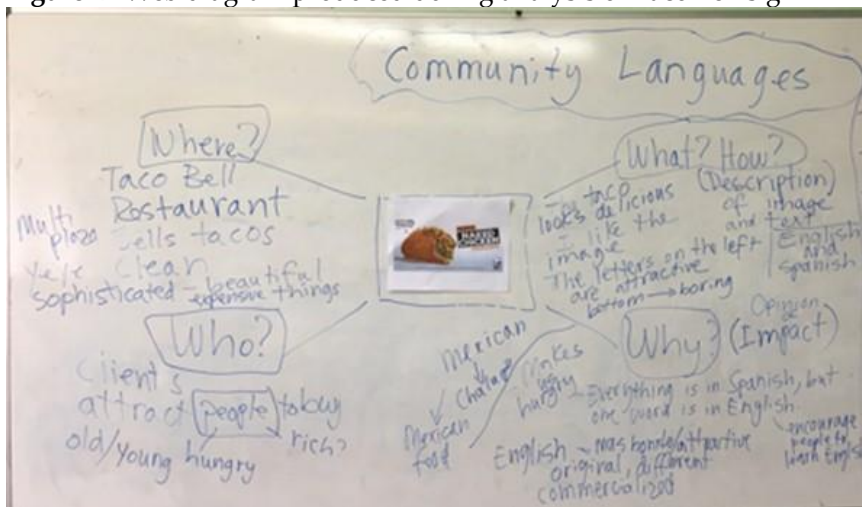 Community Languages
Where?
Taco Bell
Restaurant
Multi
plaza
Sells tacos
ye ye
clean
sophisticated - beautiful
expensive things
Who?
Clients
attract people to buy
old/young hungry
rich?
NAKED
CHICKEN
What? How?
(Description)
of image
and text
English
and
Spanish
The taco
looks delicious
I like the
image
The letters on the left
are attractive
bottom → boring
Why?
Opinion
(Impact)
Makes
you
hungry
Everything is in Spanish, but
one word is in English.
encourage
people to
learn English
Mexican
Mexican
food
English
original, different
commercialized